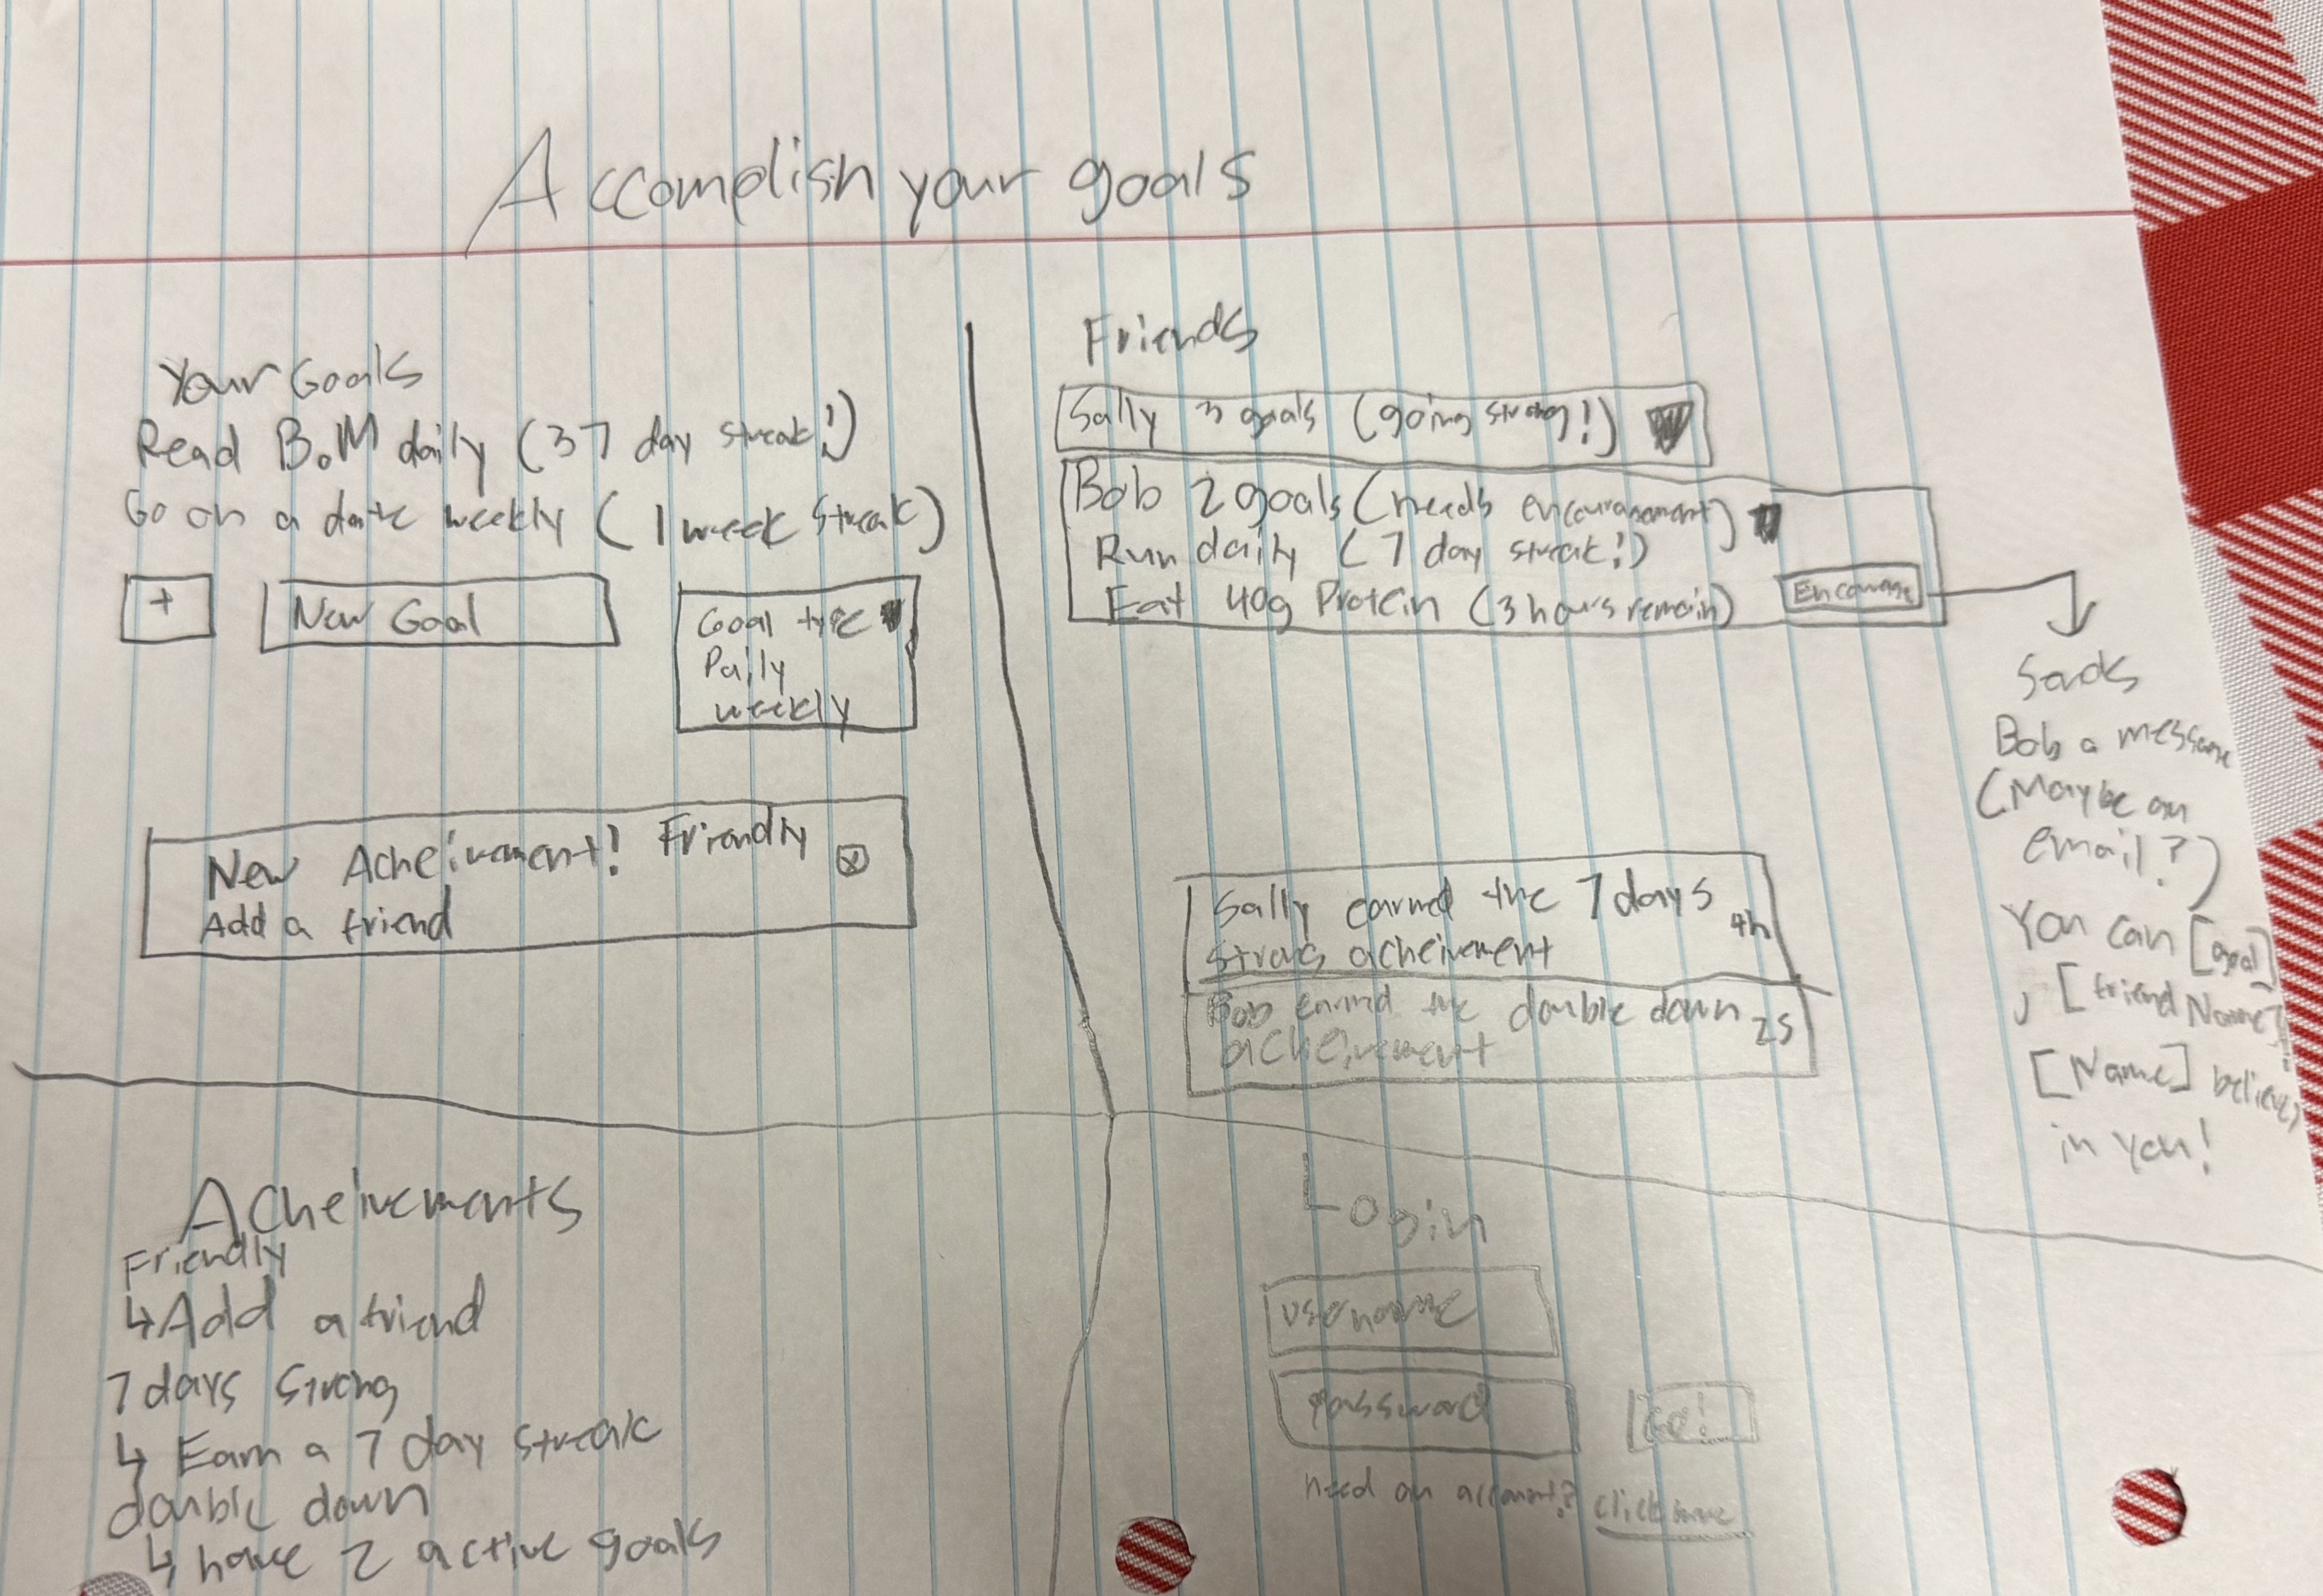 Accomplish your goals
Your Goals
Read B.o.M daily (37 day streak!)
Go on a date weekly (1 week streak)
+
New Goal
Goal type
Daily
weekly
New Acheivement! Friendly
x
Add a friend
Friends
Sally 3 goals (going strong!)
Bob 2 goals (needs encouragement)
Run daily (7 day streak!)
Eat 40g Protein (3 hours remain)
Encourage
Sends
Bob a message
(Maybe an
email?)
You can [goal]
, [friend Name]!
[Name] believes
in you!
Sally earned the 7 days
strong acheivement
4h
Bob earned the double down
acheivement
2s
Acheivements
Friendly
↳ Add a friend
7 days strong
↳ Earn a 7 day streak
double down
↳ have 2 active goals
Login
username
password
Go!
need an account? click here